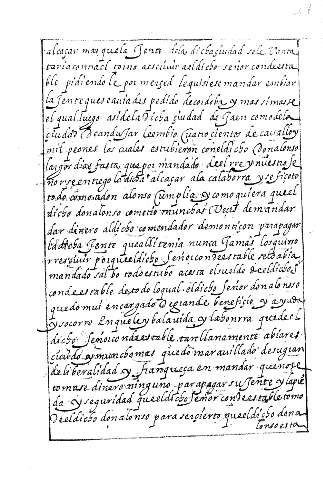 alcaçar mas que la Jente de la dicha ciudad se le
taria con nael como a escluir a el dicho señor condesta
ble pidiendo le por merced le quisiese mandar embiar
la Jente que se avia despedido de cordoba y mas si mas se
el qual luego asi de la Dicha ciudad de Jaen como de la
ciudad De andujar le embio cuatrocientos de cavallo y
mil peones los cuales estubieron con el dicho Don alonso
largos dias fasta que por mandado del rre y nuestro se
nor se entrego la dicha alcaçar a la calahorra y se fiço
todo como a don alonso cumplia y como quiera que el
dicho don alonso cometio munchas Veces de mandar
dar dinero al dicho comendador de montiçon para pagar
la dicha Jente que alli tenia nunca Jamas los quiso
rresçebir porque el dicho Señor condestable se lo abia
mandado salbo todo estubo a costa el sueldo de el dicho s
condestable de todo lo qual el dicho señor don alonso
quedo mui encargado De grande beneficio y ayuda
y socorro En que le y ba la vida y la honrra que de el
dicho Señor condestable tan llanamente abia res
civido y muncho mas quedo maravillado de su gran
de liberalidad y franqueça en mandar que no se
tomase dinero ninguno para pagar su Jente y la
da y seguridad que el dicho Señor condestable tomo
De el dicho don alonso para ser çierto que el dicho don a
lonso esta